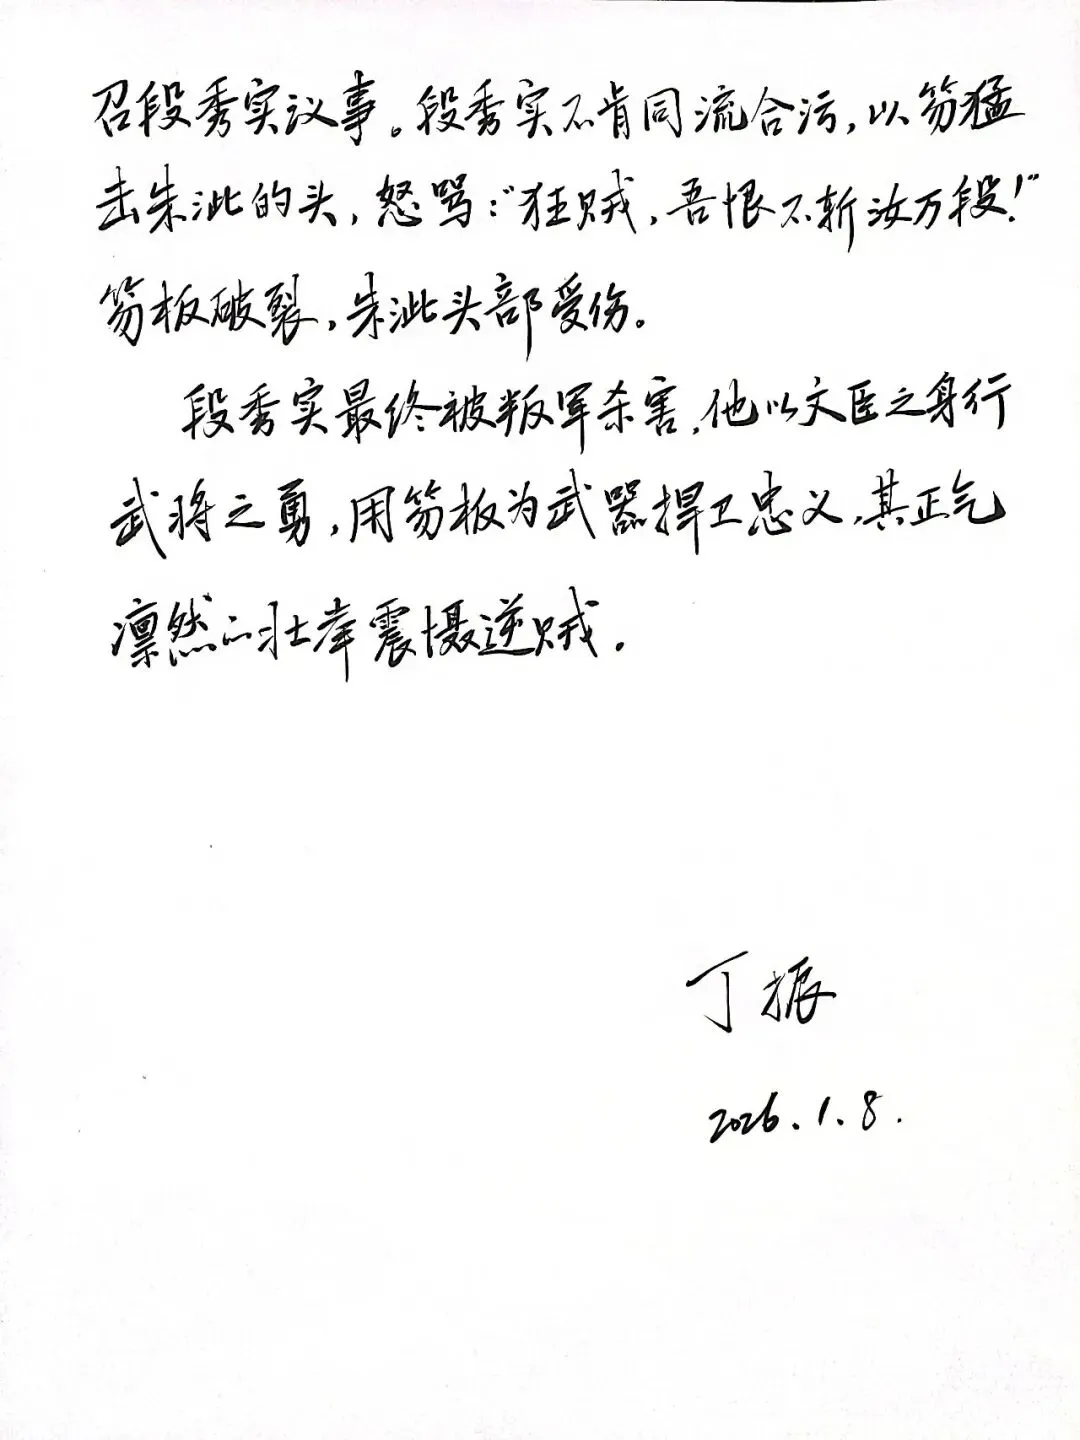 召段秀实议事。段秀实不肯同流合污，以笏猛
击朱泚的头，怒骂：“狂贼，吾恨不斩汝万段！”
笏板破裂，朱泚头部受伤。
段秀实最终被叛军杀害，他以文臣之身行
武将之勇，用笏板为武器捍卫忠义，其正气
凛然的壮举震慑逆贼。
丁振
2026.1.8.